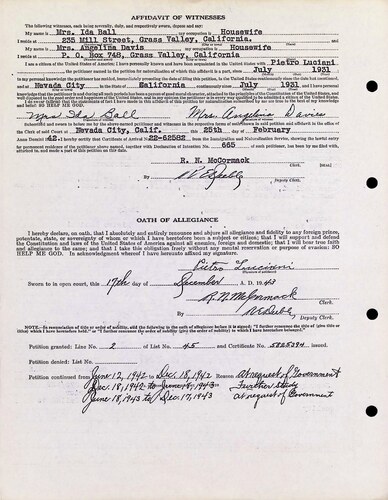 AFFIDAVIT OF WITNESSES
The following witnesses, each being severally, duly, and respectively sworn, depose and say:
My name is Mrs. Ida Ball, my occupation is Housewife
I reside at 235 Mill Street, Grass Valley, California.
My name is Mrs. Angelina Davis, my occupation is Housewife
I reside at P. O. Box 748, Grass Valley, California
I am a citizen of the United States of America; I have personally known and have been acquainted in the United States with Pietro Luciani
, the petitioner named in the petition for naturalization of which this affidavit is a part, since July 1931
to my personal knowledge the petitioner has resided, immediately preceding the date of filing this petition, in the United States continuously since the date last mentioned,
and at Nevada City, in the State of California continuously since July 1931, and I have
personal knowledge that the petitioner is and during all such periods has been a person of good moral character, attached to the principles of the Constitution of the United States,
and well disposed to the good order and happiness of the United States, and in my opinion the petitioner is in every way qualified to be admitted a citizen of the United States.
I do swear (affirm) that the statements of fact I have made in this affidavit of this petition for naturalization subscribed by me are true to the best of my knowledge
and belief: SO HELP ME GOD.
Mrs Ida Ball Mrs. Angelina Davis
Subscribed and sworn to before me by the above-named petitioner and witnesses in the respective forms of oath shown in said petition and affidavit in the office of
the Clerk of said Court at Nevada City, Calif. this 25th day of February
Anno Domini 1942. I hereby certify that Certificate of Arrival No. 22-62582 from the Immigration and Naturalization Service, showing the lawful entry
for permanent residence of the petitioner above named, together with Declaration of Intention No. 665 of such petitioner, has been by me filed with,
attached to, and made a part of this petition on this date.
R. N. McCormack
Clerk.
By
Deputy Clerk.
OATH OF ALLEGIANCE
I hereby declare, on oath, that I absolutely and entirely renounce and abjure all allegiance and fidelity to any foreign prince,
potentate, state, or sovereignty of whom or which I have heretofore been a subject or citizen; that I will support and defend
the Constitution and laws of the United States of America against all enemies, foreign and domestic; that I will bear true faith
and allegiance to the same; and that I take this obligation freely without any mental reservation or purpose of evasion: SO
HELP ME GOD. In acknowledgment whereof I have hereunto affixed my signature.
Pietro Luciani
Sworn to in open court, this 17th day of December, A. D. 1943
R. N. McCormack
Clerk.
By
Deputy Clerk.
NOTE.—In renunciation of title or order of nobility, add the following to the oath of allegiance before it is signed: "I further renounce the title of (give title or
titles) which I have heretofore held," or "I further renounce the order of nobility (give the order of nobility) to which I have heretofore belonged."
Petition granted: Line No. 2 of List No. 45 and Certificate No. 5825394 issued.
Petition denied: List No.
Petition continued from June 12, 1942 to Dec. 18, 1942 Reason at request of Government
Dec. 18, 1942 to June 18, 1943 Further study
June 18, 1943 to Dec. 17, 1943 at request of Government